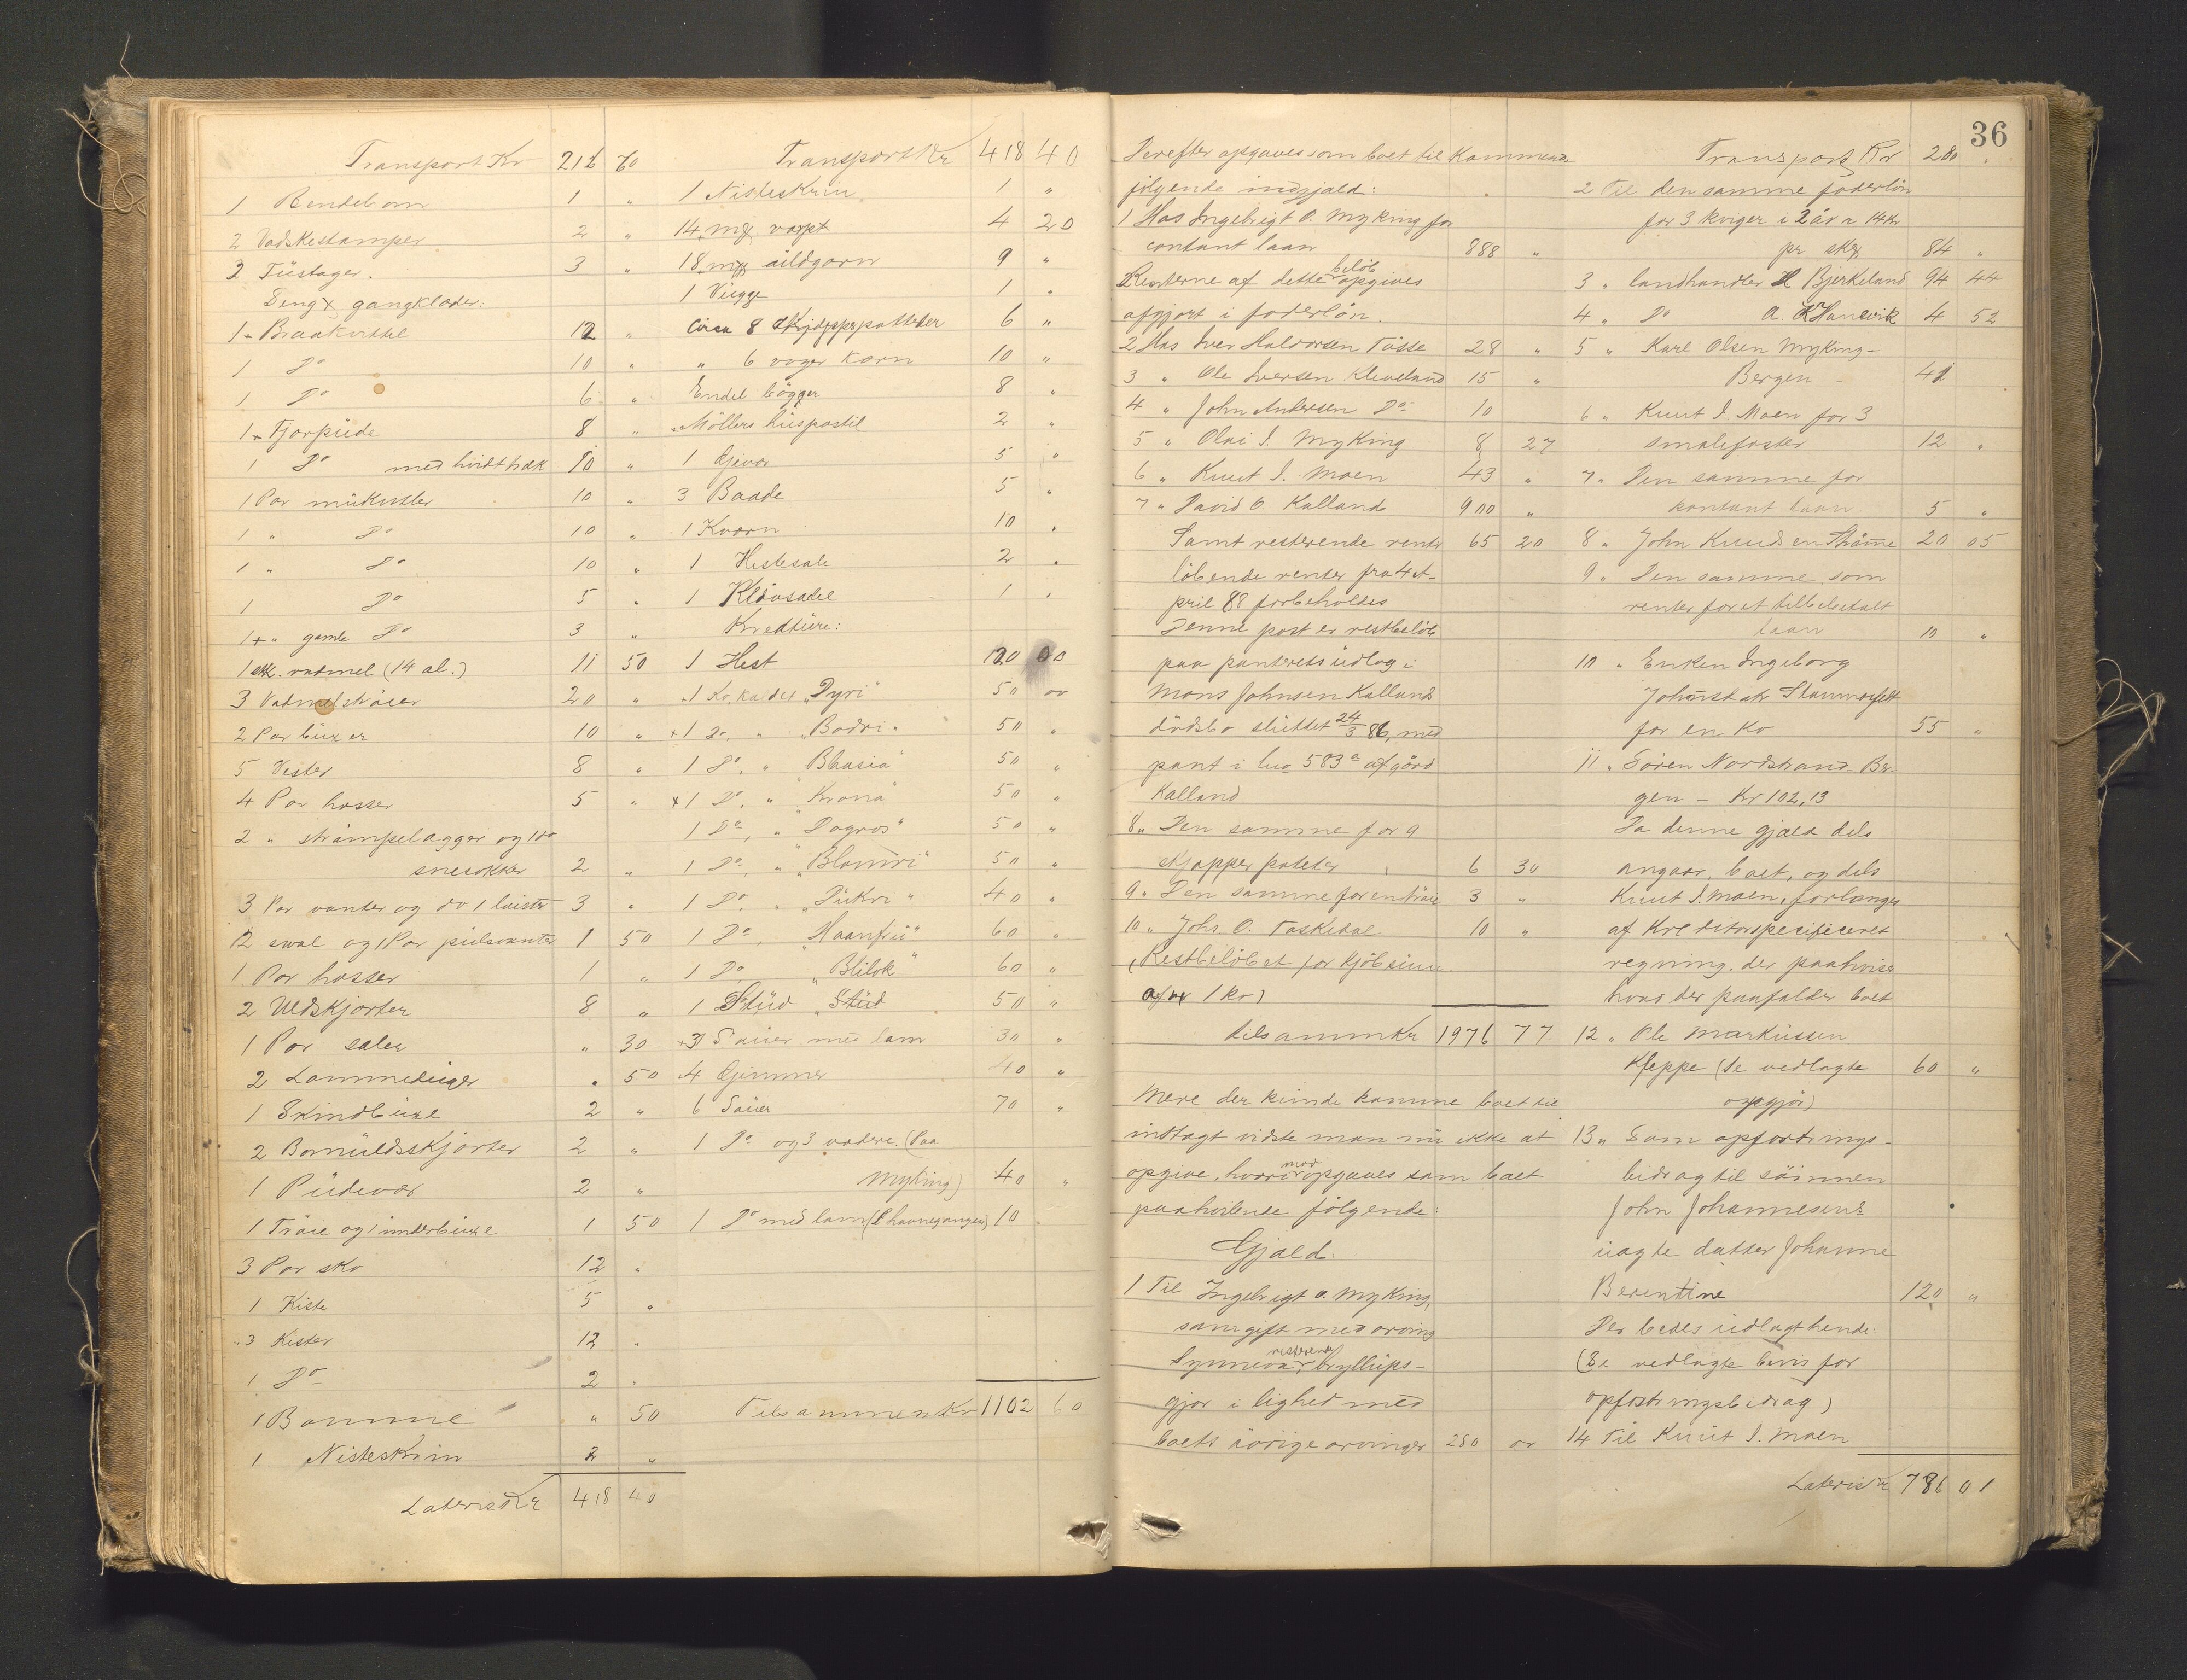 Transport Kr 216 70
1 Rendebom 1 "
2 Vadskestamper 2 "
3 Tüstager. 3 "
Seng & gangklæder:
1 Braakvittel 12 "
1 Do 10 "
1 Do 6 "
1 Fjærpüde 8 "
1 Do med hvidt træk 10 "
1 Par mükvitler 10 "
1 " Do 10 "
1 " Do 10 "
1 Do 5 "
1 " gamle Do 3 "
1 stk. vadmel (14 al.) 11 50
3 Vadmelströier 20 "
2 Par büxer 10 "
5 Vester 8 "
4 Par hoser 5 "
2 " strömpelagger og 1 do
snesokker 2 "
3 Par vanter og do 1 loister 3 "
2 swal og 1 Par pulsvanter 1 50
1 Par hosser 1 "
2 Uldskjorter 8 "
1 Par saler " 30
2 Lommeduger " 50
1 Skindbüxe 2 "
2 Bomüldsskjorter 2 "
1 Püdevar 2 "
1 Tröie og 1 ünderbüxe 1 50
3 Par sko 12 "
1 Kiste 5 "
3 Kister 12 "
1 Do 2 "
1 Bomme " 50
1 Nisteskrin 2 "
Lateris Kr 418 40
Transport Kr 418 40
1 Nisteskrin 1 "
14 mk varpt 4 20
18 mk uildgarn 9 "
1 Vügge 1 "
Circa 8 Skjepper patteter 6 "
" 6 voger korn 10 "
Endel bögger 8 "
Möllers hüspostil 2 "
1 Gevær 5 "
3 Baade 5 "
1 Kværn 10 "
1 Hestesale 2 "
1 Klövsadel 1 "
Kreatüre:
1 Hest 120 00
1 Ko, kaldet "Dyri" 50 or
1 Do, " "Bodri" 50 "
1 Do, " "Blaasia" 50 "
1 Do, " "Krona" 50 "
1 Do, " "Dagros" 50 "
1 Do, " "Blomri" 50 "
1 Do, " "Dükri" 40 "
1 Do, "Haanfrü" 60 "
1 Do "Blilok" 60 "
1 Stüd "Stüd 50 "
3 Sauer med lam 30 "
4 Gimmer 40 "
6 Sauer 70 "
1 Do og 3 vædere. (Paa
Myking) 40 "
1 Do med lam (I havnegangen) 10
Tilsammen Kr 1102 60
36
Derefter opgaves som boet tilkommende
følgende indgjæld:
1 Hos Ingebrigt O. Myking for
contant laan 888 "
Renterne af dette beløb opgives
afgjort i foderlön.
2 Hos Iver Haldorsen Tösse 28 "
3 " Ole Iversen Kleveland 15 "
4 " John Andersen Do 10
5 " Olai I. Myking 8 27
6 " Knut I. Moen 43 "
7 " David O. Kalland 900 "
Samt resterende renter 65 20
löbende renter fra 4 A-
pril 88 forbeholdes
Denne post er restbelöb
paa panterets üdlæg i
Mons Johnsen Kallands
dödsbo slüttet 24/3 86, med
pant i lno 583 a af gård
Kalland
8 " Den samme for 9
skjepper poteter 6 30
9 " Den samme for en tröie 3 "
10 " Johs O. Taskedal 10 "
(Restbelöbet for kjöbesum
af 1 ko)
tilsammen Kr 1976 77
Mere der künde komme boet til
indtægt vidste man nü ikke at
opgive, hvorimod opgaves som boet
paahvilende følgende:
Gjæld.
1 Til Ingebrigt O. Myking,
som gift med arving
Synneva, resterende bryllüps-
gjør i lighed med
boets övrige arvinger 280 or
Transport Kr 280 "
2 Til den samme foderlön
for 3 kviger i 2 år a 14 Kr
pr stk 84 "
3 " landhandler H Bjerkeland 94 44
4 " Do A. K Hanevik 4 52
5 " Karl Olsen Myking -
Bergen 41
6 " Knut I. Moen for 3
smalefoster 12 "
7 " Den samme for
kontant laan 5 "
8 " John Knudsen Thöme 20 05
9 " Den samme som
renter for et tilbebetalt
laan 10 "
10 " Enken Ingeborg
Johansdatr
for en ko 55 "
11 " Sören Nordstrand - Ber-
gen - Kr 102,13
Da denne gjæld dels
angaar boet, og dels
Knut I. Moen, forlanges
af kreditor specificeret
regning, der paaviser
hvad der paafalder boet
12 " Ole Markussen
Kleppe (Se vedlagte 60 "
opgjør)
13 " Som opfostrings-
bidrag til sönnen
John Johannesens
üægte datter Johanne
Berentine 120 "
Der bedes üdlagt hende.
(Se vedlagte bevis for
opfostringsbidrag)
14 Til Knüt I. Moen
Lateris Kr 786 01